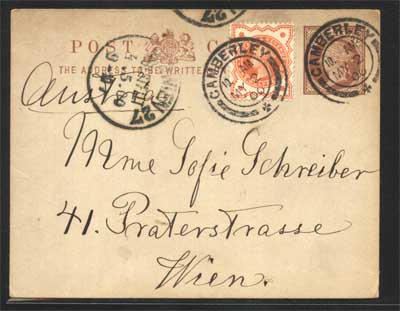 POST C
THE ADDRESS TO BE WRITTEN
CAMBERLEY
CAMBERLEY
WIEN
27
Mme Sofie Schreiber
41. Praterstrasse
Wien.